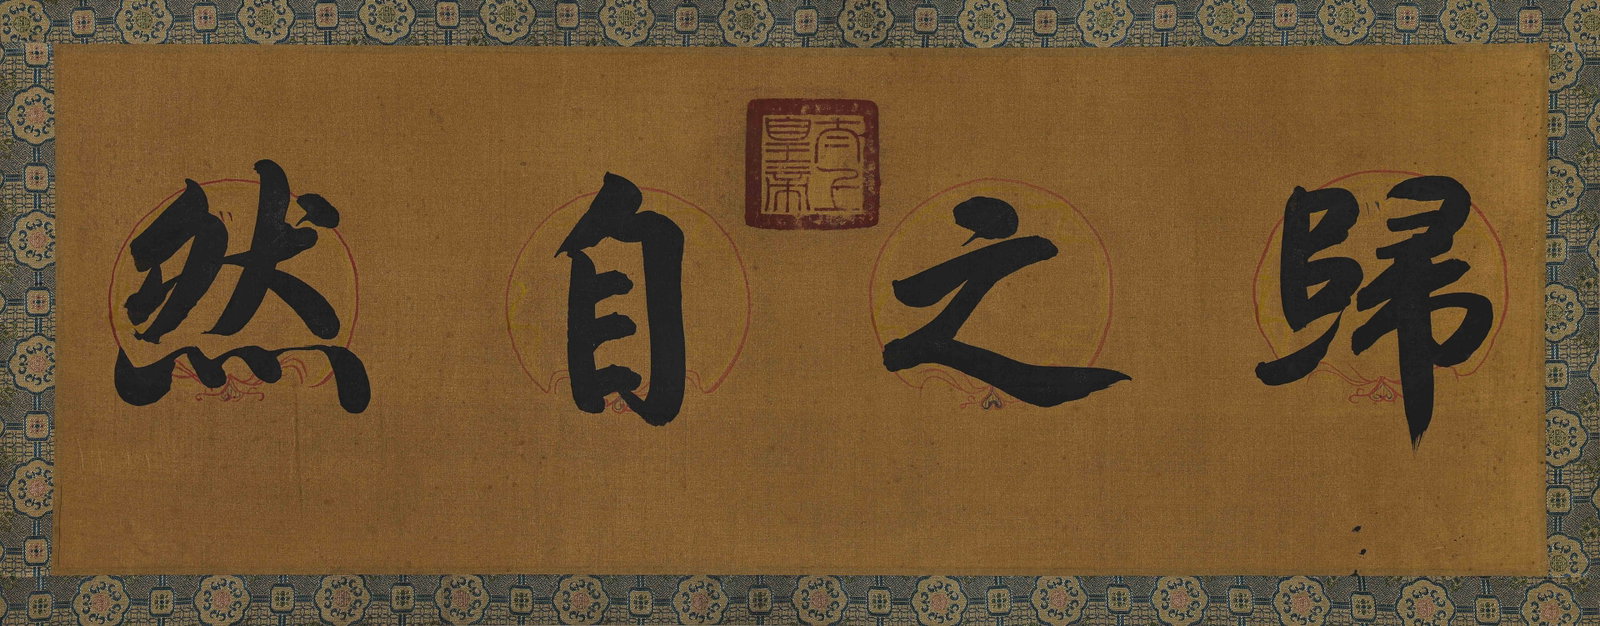 歸之自然
太上皇帝